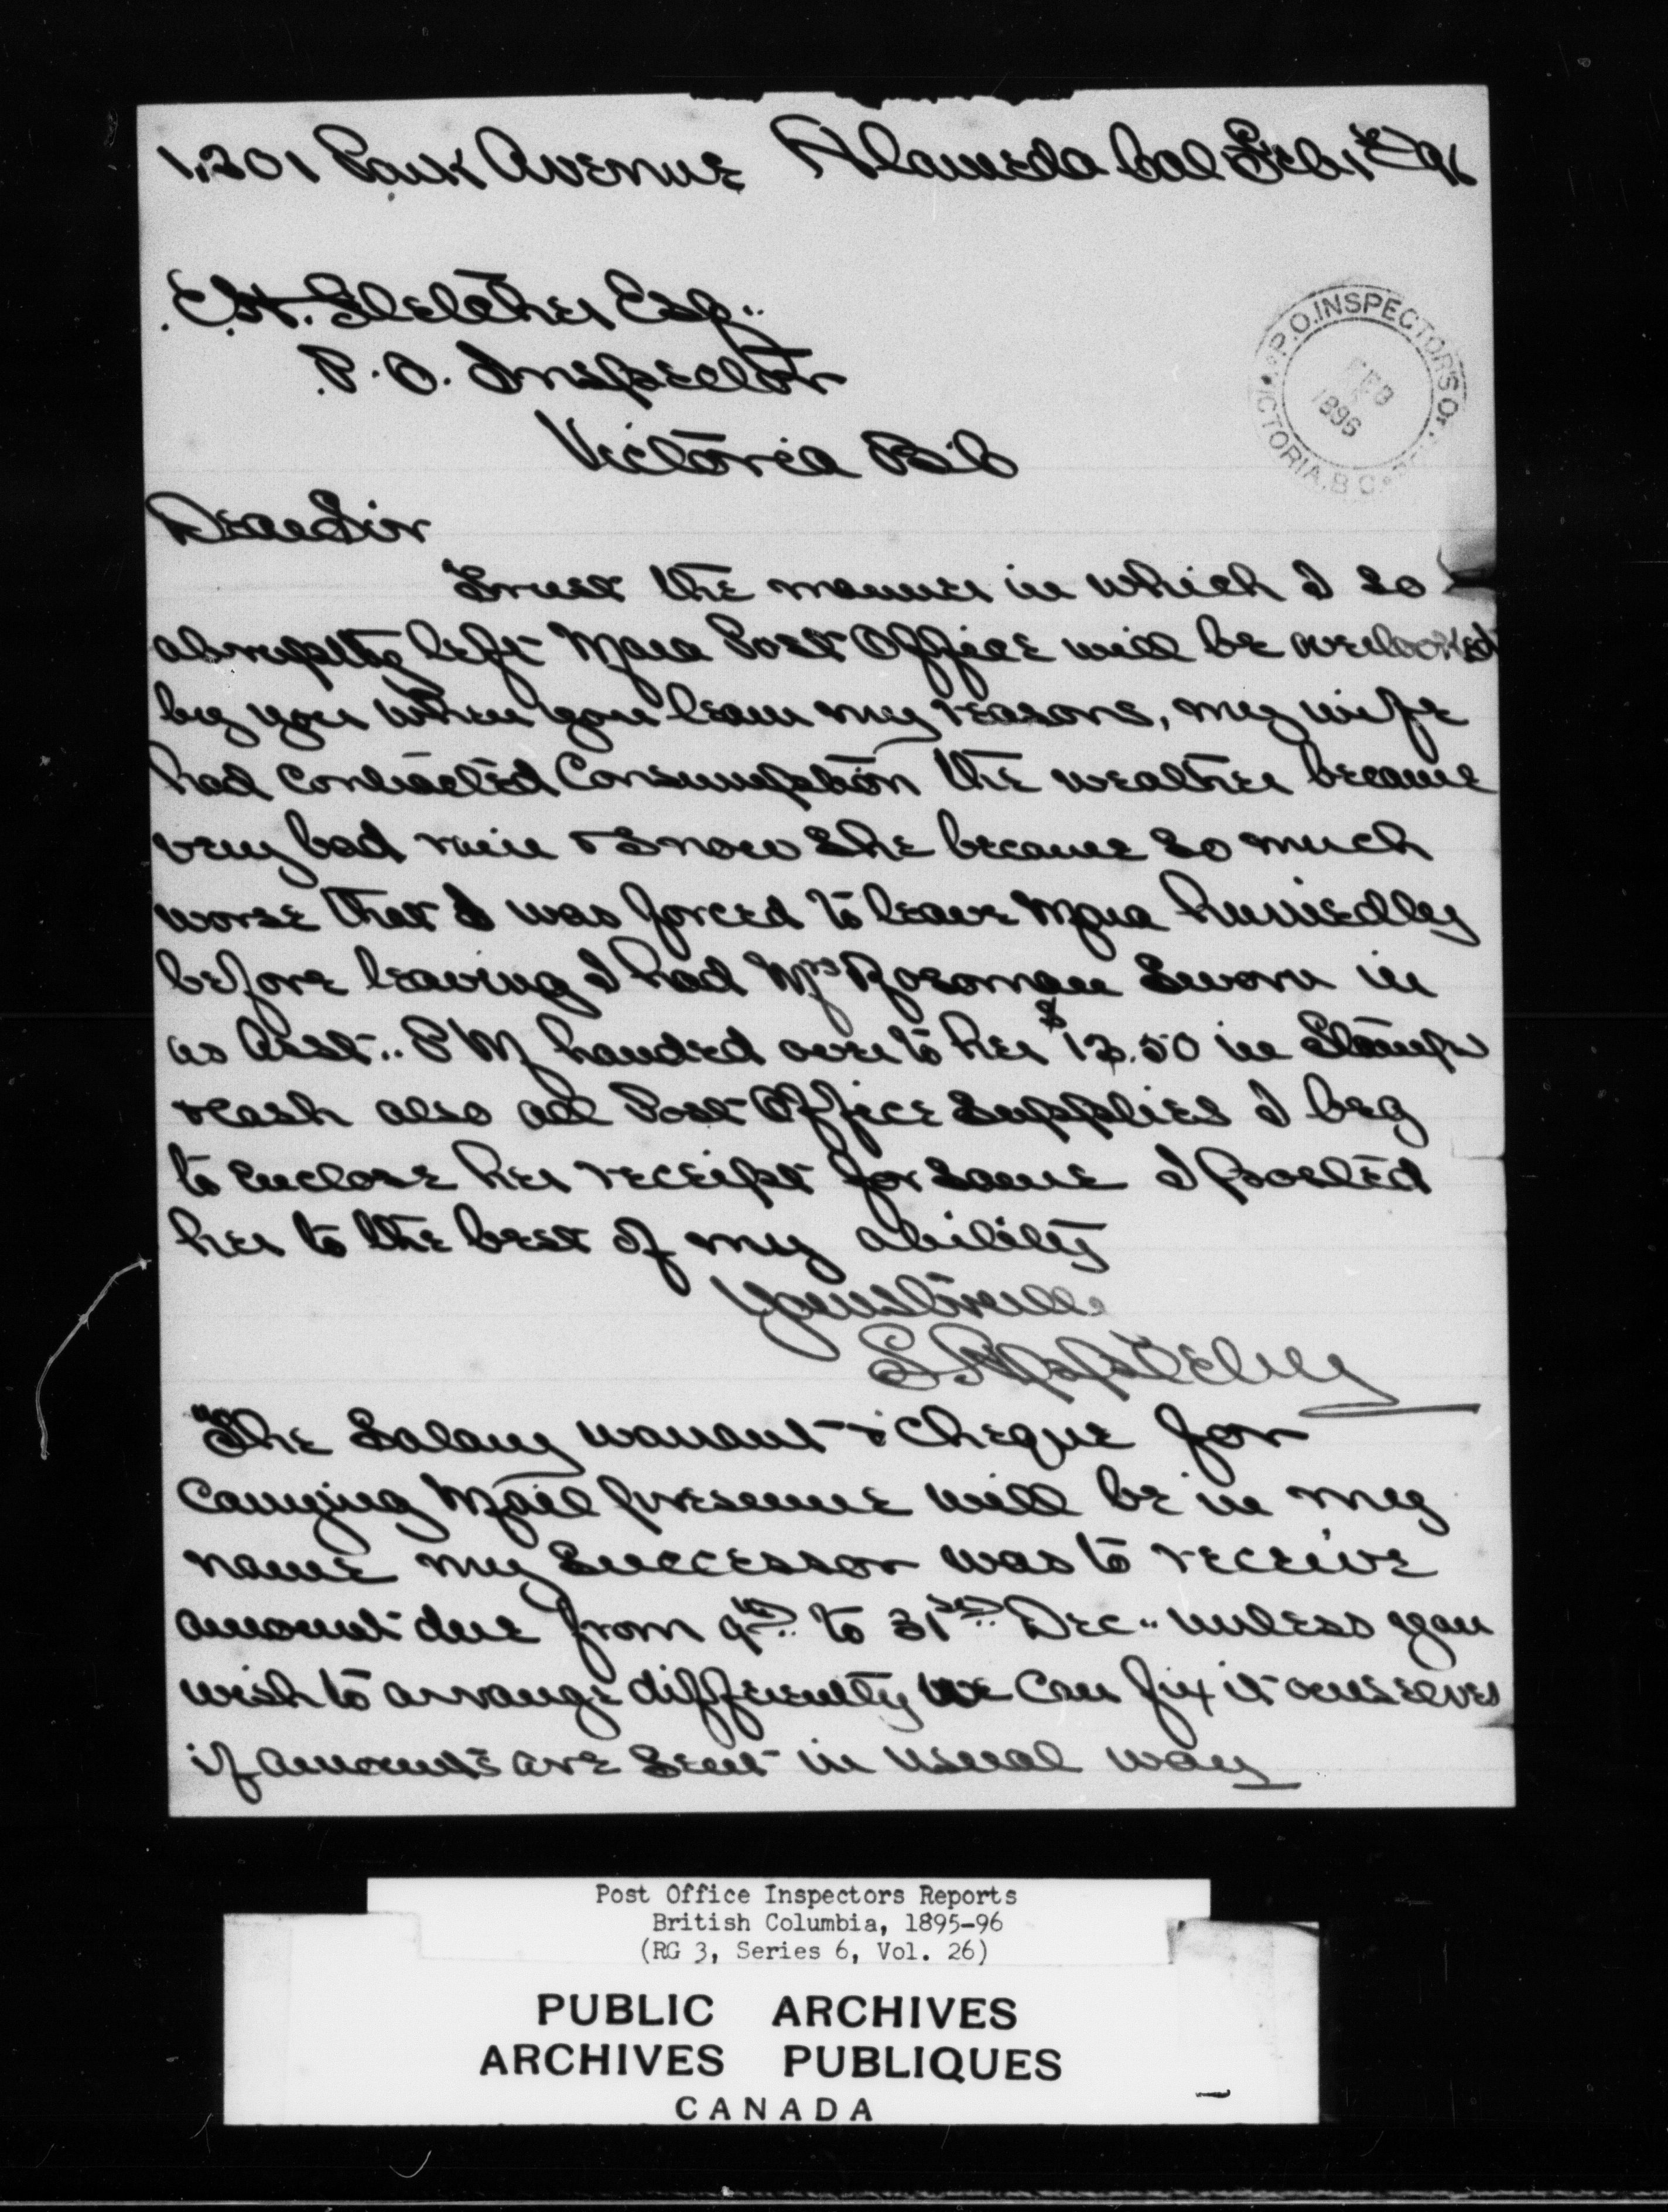 1,201 Park Avenue Alameda Cal Feb 1st 96
E. H. Fletcher Esq..
P. O. Inspector
Victoria B.C
P.O. INSPECTOR'S O
FEB
1896
VICTORIA. B.C.
Dear Sir
Trust the manner in which I so
abruptly left Mara Post Office will be overlooked
by you when you learn my reasons, my wife
had contracted Consumption the weather became
very bad rain & snow She became so much
worse that I was forced to leave Mara hurriedly
before leaving I had Mrs Rosoman Sworn in
as Asst.. P M handed over to her $13.50 in Stamps
& cash also all Post Office Supplies I beg
to enclose her receipt for same I posted
her to the best of my ability
Yours truly
S Appleby
"The Salary warrant & Cheque for
Carrying Mail presume will be in my
name my Successor was to receive
amount due from 9th.. to 31st.. Dec.. unless you
wish to arrange differently we can fix it ourselves
if amounts are sent in usual way
Post Office Inspectors Reports
British Columbia, 1895-96
(RG 3, Series 6, Vol. 26)
PUBLIC ARCHIVES
ARCHIVES PUBLIQUES
CANADA